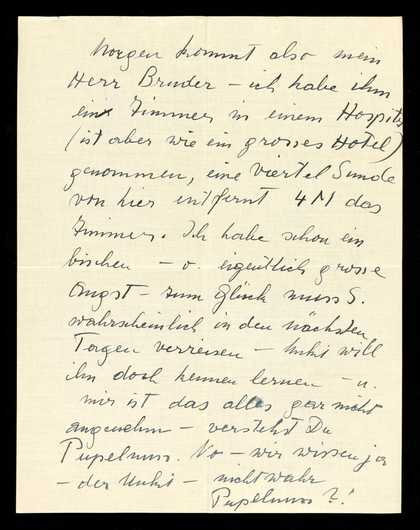 Morgen kommt also mein
Herr Bruder – ich habe ihm
ein Zimmer in einem Hospitz
(ist aber wie ein grosses Hotel)
genommen, eine viertel Sunde
von hier entfernt 4 M das
Zimmer. Ich habe schon ein
bischen – o. eigentlich grosse
Angst – zum Glück muss S.
wahrscheinlich in den nächsten
Tagen verreisen – will
ihn doch kennen lernen – u.
mir ist das alles gar nicht
angenehm – verstehst Du
Pupelnuss. No – wir wissen ja
– der – nicht wahr
Pupelnuss?!